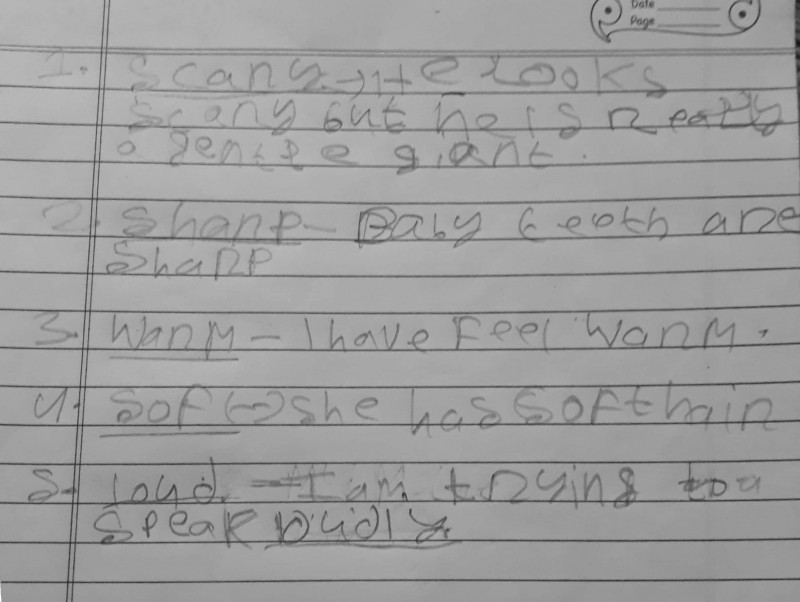 Date
Page
1. Scary → He looks
Scary but he is really
a gentle giant.
2. Sharp - Baby teeth are
Sharp
3. Warm - I have Feel warm.
4. Soft → She has soft hair
5. Loud - I am trying to
Speak loudly